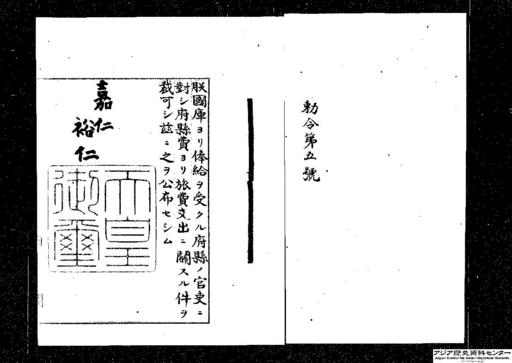 勅令第五號
朕國庫ヨリ俸給ヲ受クル府縣ノ官吏ニ
對シ府縣費ヨリ旅費支出ニ關スル件ヲ
裁可シ茲ニ之ヲ公布セシム
嘉仁
裕仁
天皇
御璽
アジア歴史資料センター
Japan Center for Asian Historical Records